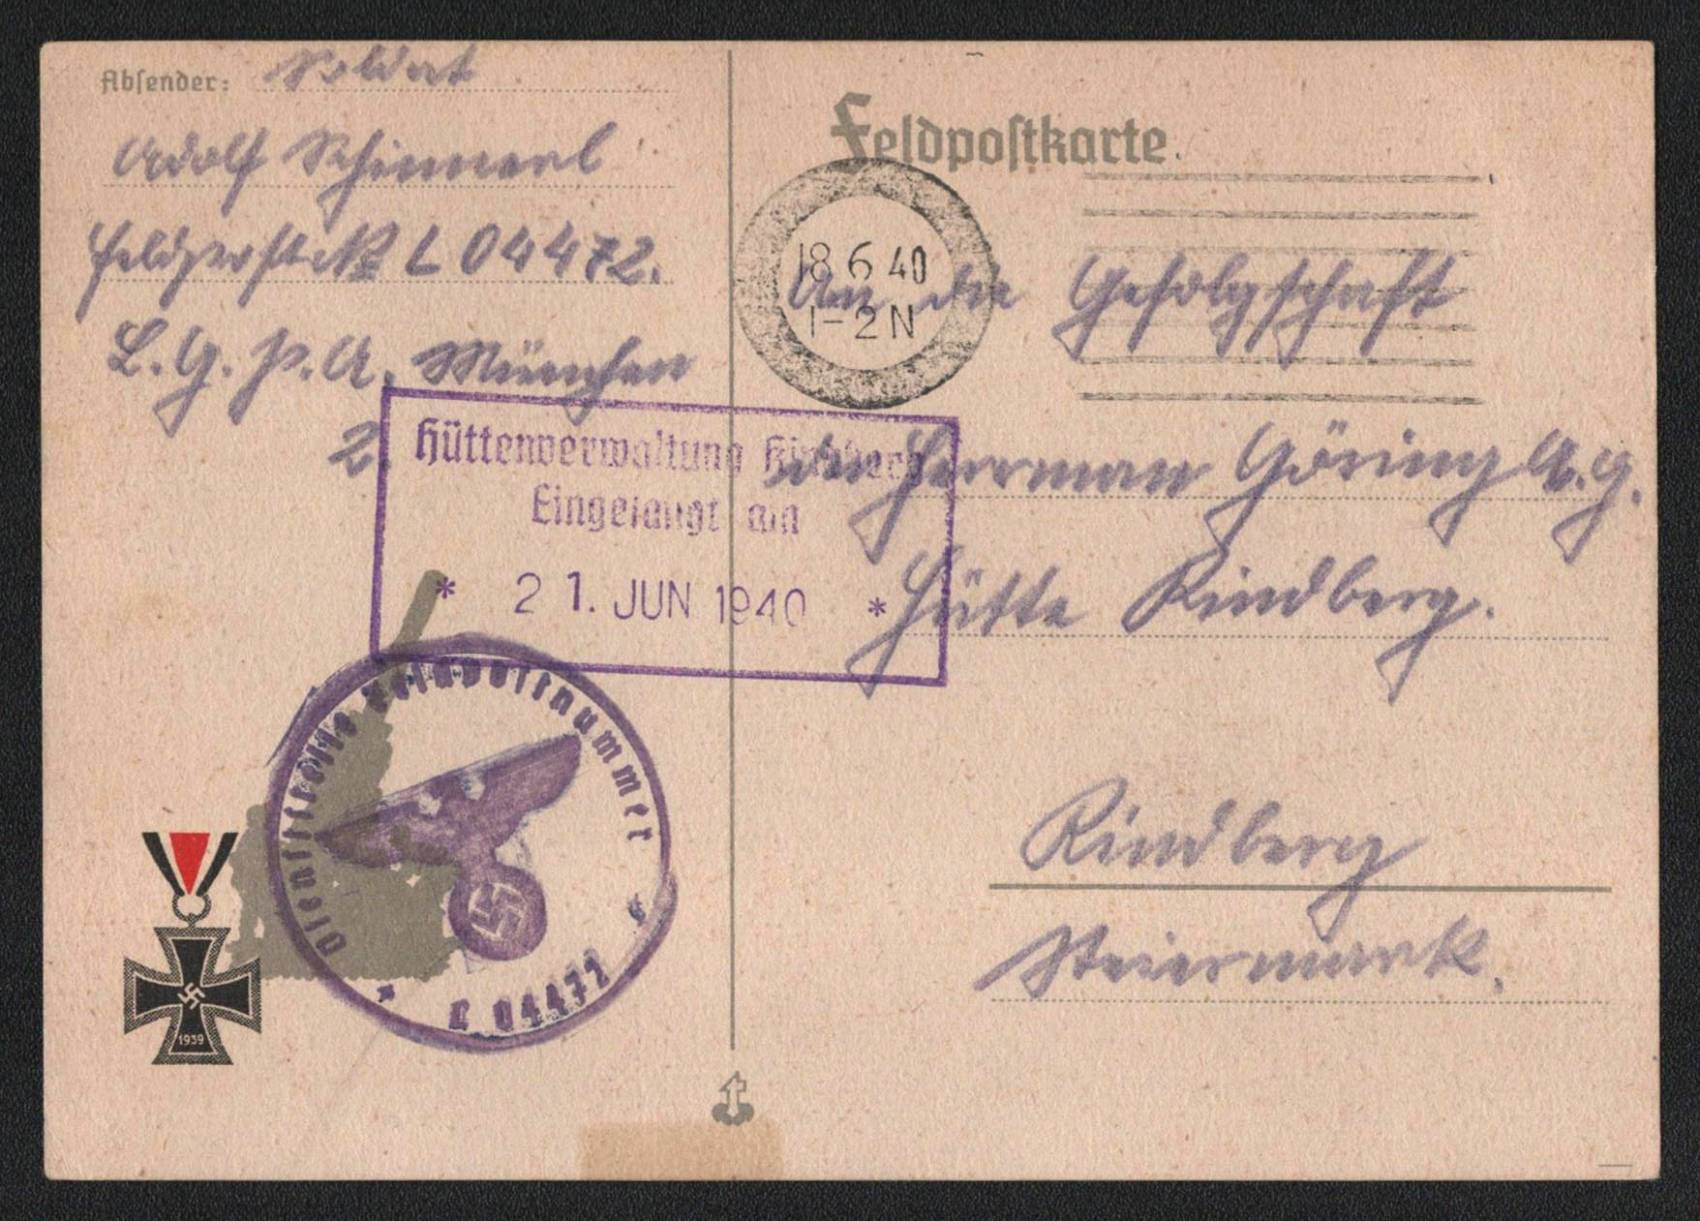 Absender: Soldat
Adolf Schinnerl
Feldpost № L 04472.
L. G. P. A. München
2.
Feldpostkarte
18 6 40
1-2 N
An die Gefolgschaft
der Herrman Göring A. G.
Hütte Kindberg.
Kindberg
Steiermark.
Hüttenverwaltung Kindberg
Eingelangt am
* 21. JUN 1940 *
Dienststelle Feldpostnummer
* L 04472 *
1939